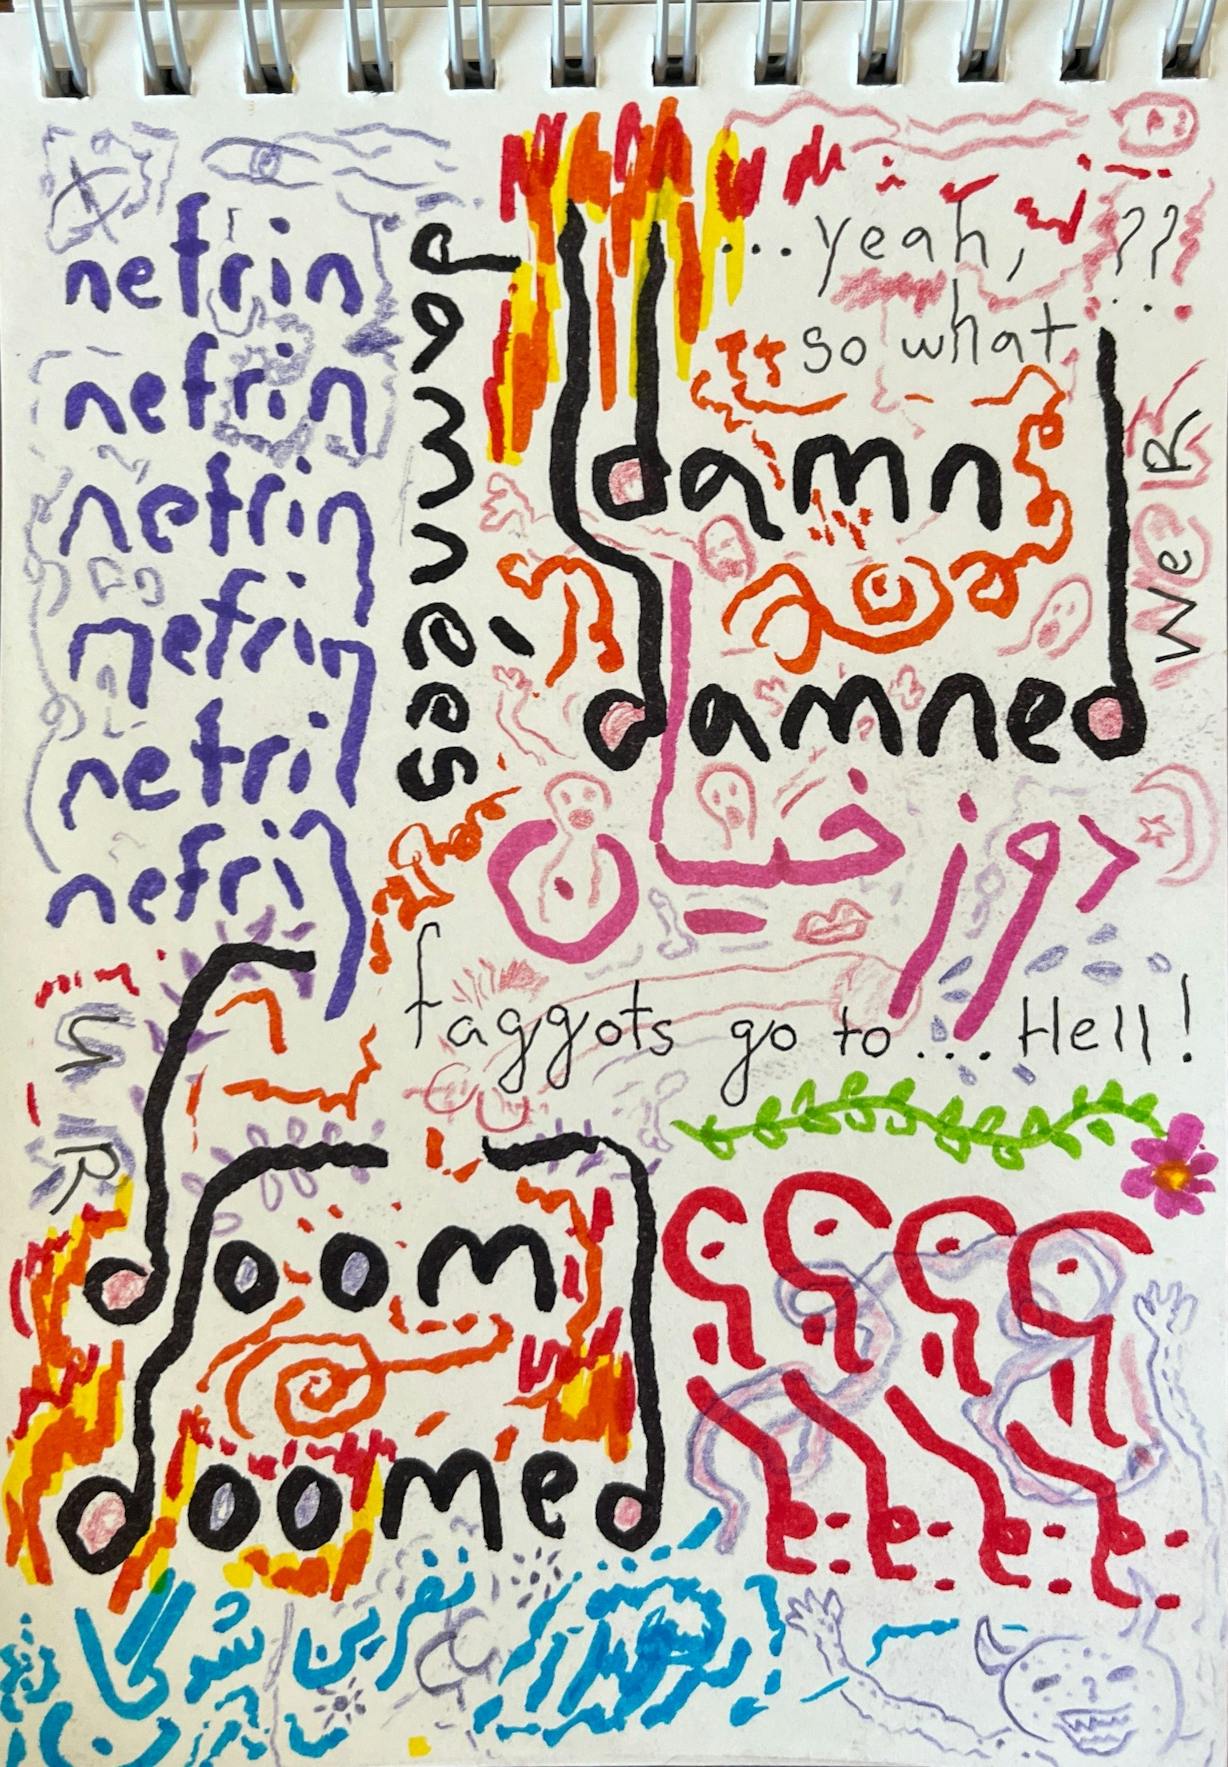 nefrin
nefrin
nefrin
nefrin
nefrin
nefrin
damnées
...yeah, ??
so what
damn
damned
We R
دوزخیان
faggots go to... Hell!
U R
doom
doomed
نفرین شدگان